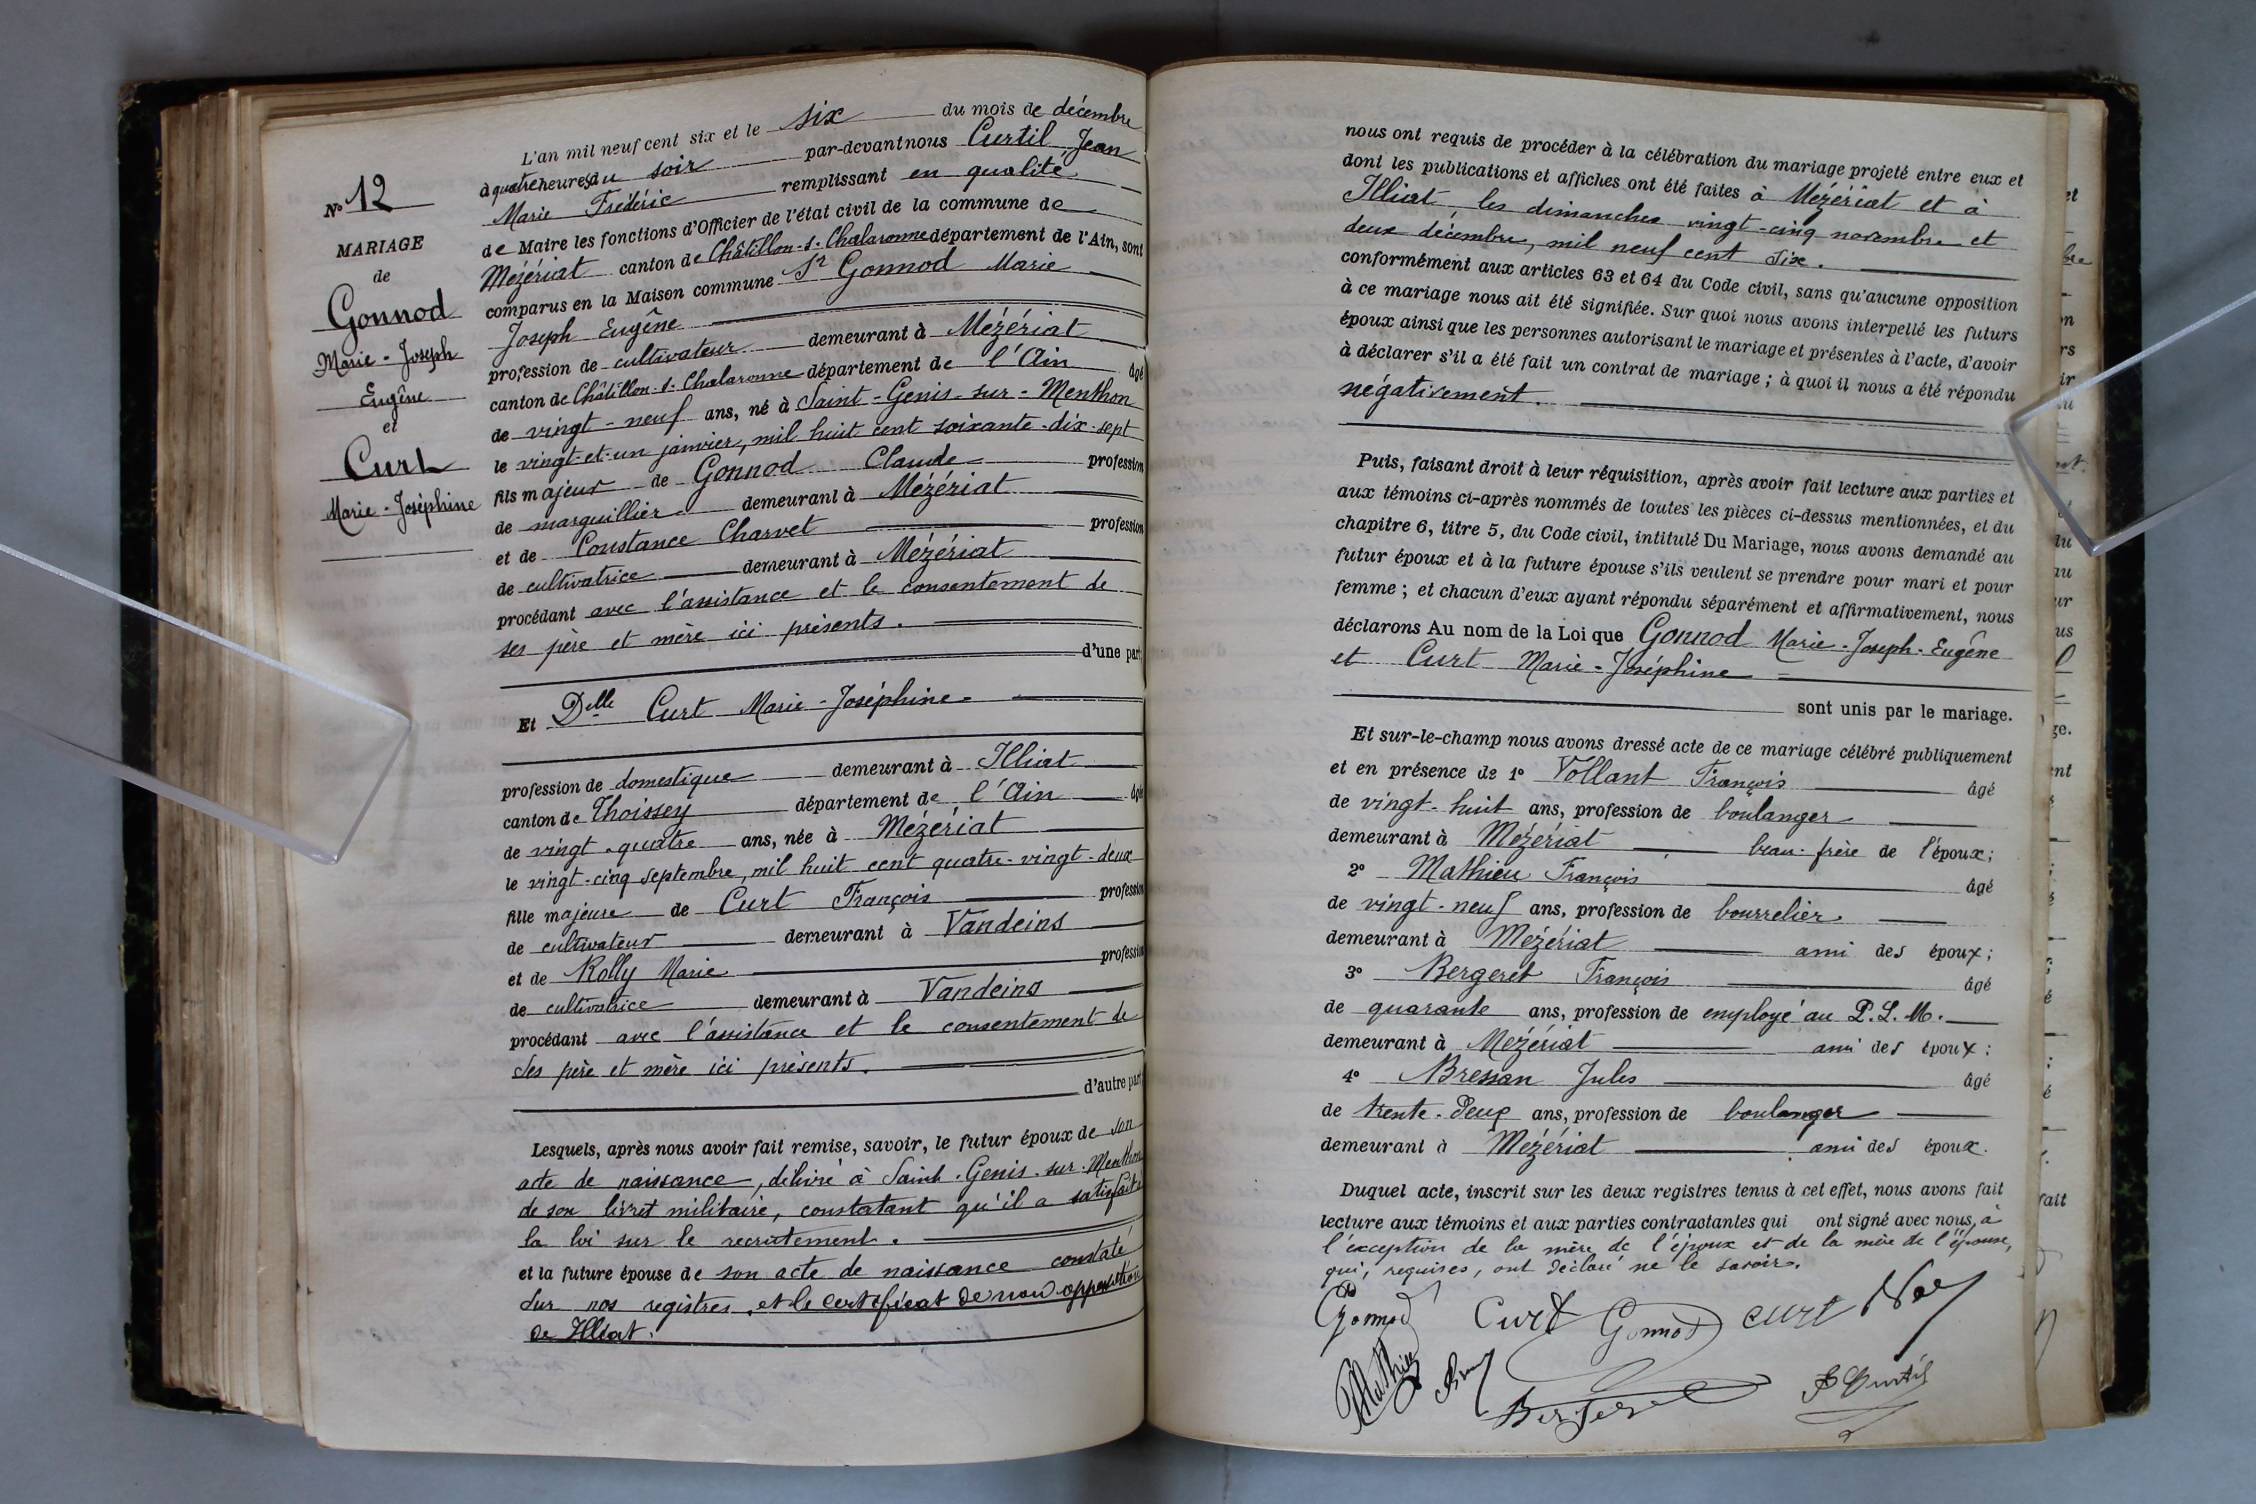 N° 12
MARIAGE
de
Gonnod
Marie-Joseph
Eugêne
et
Curt
Marie-Joséphine
L'an mil neuf cent six et le six du mois de décembre
à quatre heures du soir par-devant nous Curtil, Jean
Marie Frédéric remplissant en qualité
de Maire les fonctions d'Officier de l'état civil de la commune de
Mézériat canton de Châtillon-s-Chalaronne département de l'Ain, sont
comparus en la Maison commune Sr Gonnod Marie
Joseph Eugêne
profession de cultivateur demeurant à Mézériat
canton de Châtillon-s-Chalaronne département de l'Ain âgé
de vingt-neuf ans, né à Saint-Genis-sur-Menthon
le vingt-et-un janvier, mil huit cent soixante-dix-sept
fils majeur de Gonnod Claude profession
de marguillier demeurant à Mézériat
et de Constance Charvet profession
de cultivatrice demeurant à Mézériat
procédant avec l'assistance et le consentement de
ses père et mère ici présents.
d'une part
Et Delle Curt Marie-Joséphine
profession de domestique demeurant à Illiat
canton de Thoissey département de l'Ain âgée
de vingt-quatre ans, née à Mézériat
le vingt-cinq septembre, mil huit cent quatre-vingt-deux
fille majeure de Curt François profession
de cultivateur demeurant à Vandeins
et de Rolly Marie profession
de cultivatrice demeurant à Vandeins
procédant avec l'assistance et le consentement de
ses père et mère ici présents.
d'autre part
Lesquels, après nous avoir fait remise, savoir, le futur époux de son
acte de naissance, délivré à Saint-Genis-sur-Menthon
de son livret militaire, constatant qu'il a satisfait à
la loi sur le recrutement.
et la future épouse de son acte de naissance constaté
sur nos registres. et le certificat de non opposition
de Illiat.
nous ont requis de procéder à la célébration du mariage projeté entre eux et
dont les publications et affiches ont été faites à Mézériat et à
Illiat les dimanches vingt-cinq novembre et
deux décembre, mil neuf cent six.
conformément aux articles 63 et 64 du Code civil, sans qu'aucune opposition
à ce mariage nous ait été signifiée. Sur quoi nous avons interpellé les futurs
époux ainsi que les personnes autorisant le mariage et présentes à l'acte, d'avoir
à déclarer s'il a été fait un contrat de mariage ; à quoi il nous a été répondu
négativement.
Puis, faisant droit à leur réquisition, après avoir fait lecture aux parties et
aux témoins ci-après nommés de toutes les pièces ci-dessus mentionnées, et du
chapitre 6, titre 5, du Code civil, intitulé Du Mariage, nous avons demandé au
futur époux et à la future épouse s'ils veulent se prendre pour mari et pour
femme ; et chacun d'eux ayant répondu séparément et affirmativement, nous
déclarons Au nom de la Loi que Gonnod Marie-Joseph-Eugêne
et Curt Marie-Joséphine
sont unis par le mariage.
Et sur-le-champ nous avons dressé acte de ce mariage célébré publiquement
et en présence de 1° Vollant François âgé
de vingt-huit ans, profession de boulanger
demeurant à Mézériat beau-frère de l'époux;
2° Mathieu François âgé
de vingt-neuf ans, profession de bourrelier
demeurant à Mézériat ami des époux;
3° Bergeret François âgé
de quarante ans, profession de employé au P.L.M.
demeurant à Mézériat ami des époux;
4° Bressan Jules âgé
de trente-deux ans, profession de boulanger
demeurant à Mézériat ami des époux.
Duquel acte, inscrit sur les deux registres tenus à cet effet, nous avons fait
lecture aux témoins et aux parties contractantes qui ont signé avec nous, à
l'exception de la mère de l'époux et de la mère de l'épouse,
qui, requises, ont déclaré ne le savoir.
Gonnod Curt Gonnod Curt
Mathieu Bergeret Curtil